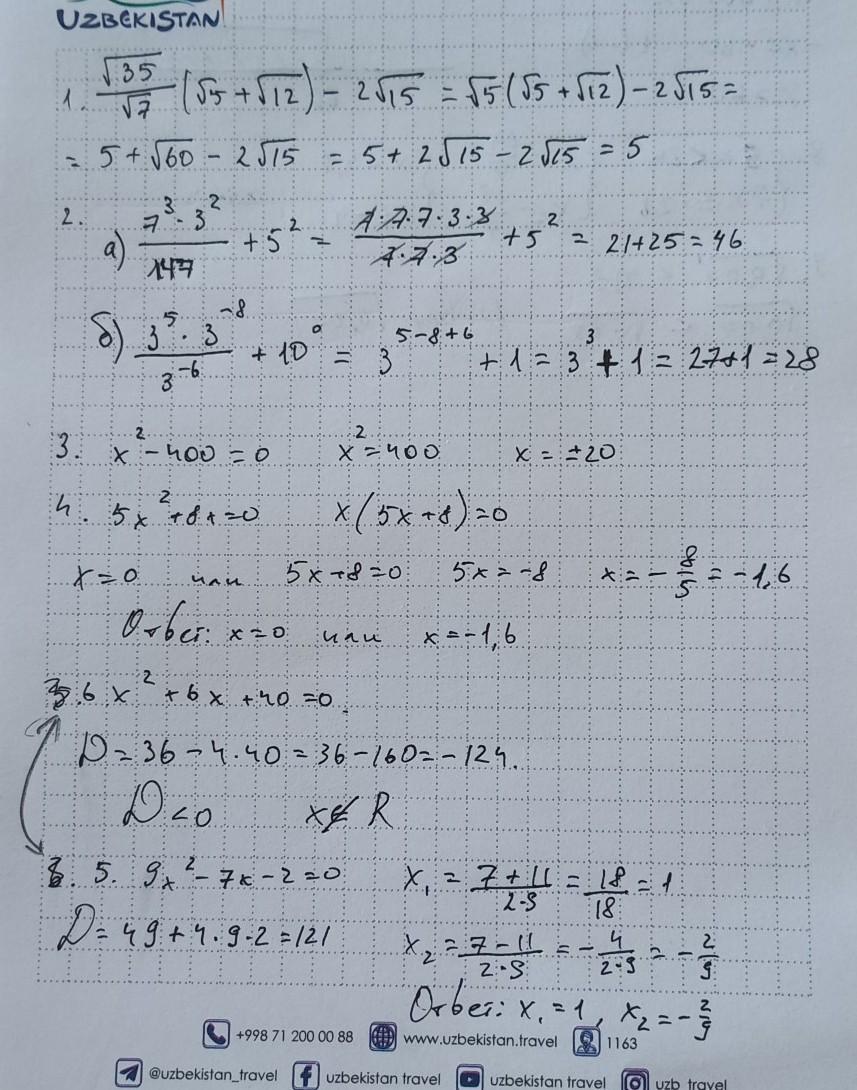 UZBEKISTAN
1. √35/√7 (√5 + √12) - 2√15 = √5(√5 + √12) - 2√15 =
= 5 + √60 - 2√15 = 5 + 2√15 - 2√15 = 5
2.
а) (7³·3²)/147 + 5² = (7·7·7·3·3)/(7·7·3) + 5² = 21+25 = 46
б) (3⁵·3⁻⁸)/3⁻⁶ + 10⁰ = 3⁵⁻⁸⁺⁶ + 1 = 3³ + 1 = 27+1 = 28
3. x² - 400 = 0 x² = 400 x = ±20
4. 5x² + 8x = 0 x(5x+8) = 0
x = 0 или 5x+8=0 5x = -8 x = -8/5 = -1,6
Ответ: x=0 или x=-1,6
6 x² + 6x + 40 = 0
D = 36 - 4·40 = 36 - 160 = -124.
D < 0 x ∉ R
5. 9x² - 7x - 2 = 0 x₁ = (7+11)/(2·9) = 18/18 = 1
D = 49 + 4·9·2 = 121 x₂ = (7-11)/(2·9) = -4/(2·9) = -2/9
Ответ: x₁ = 1, x₂ = -2/9
+998 71 200 00 88 www.uzbekistan.travel 1163
@uzbekistan_travel uzbekistan travel uzbekistan travel uzb_travel